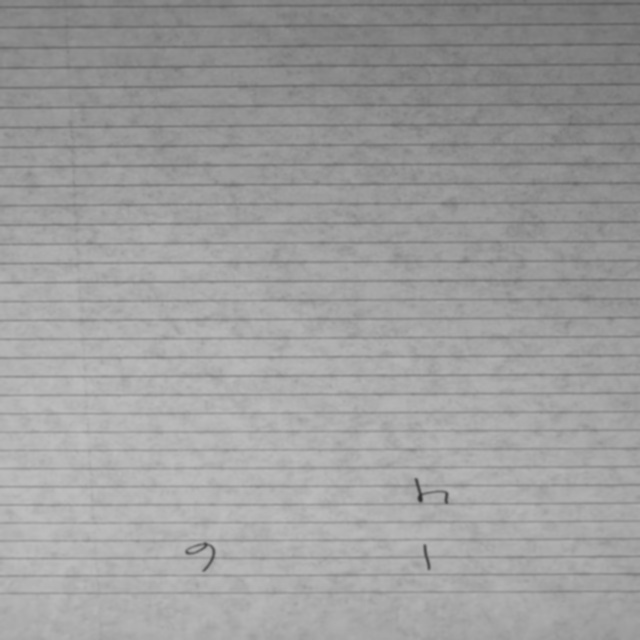 h
9 1